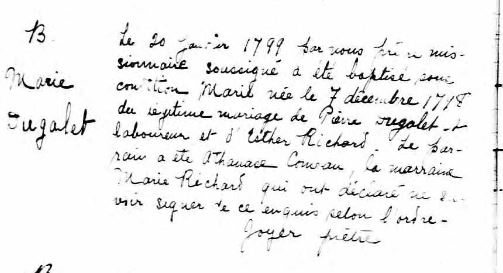 B.
Marie
Dugalet
Le 20 janvier 1799 par nous prêtre mis-
sionnaire soussigné a été baptisé sous
condition Marie née le 7 décembre 1718
du légitime mariage de Pierre Dugalet
laboureur et d'Esther Richard. Le par-
rain a été Athanase Comeau, la marraine
Marie Richard qui ont déclaré ne sa-
voir signer de ce enquis selon l'ordre-
Joyer prêtre
B